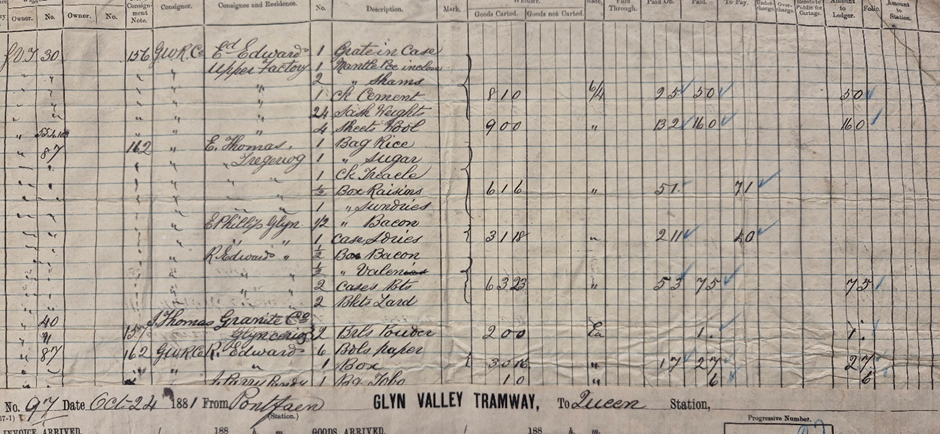 Owner. No. Owner. No. Consignment Note. Consigner. Consignee and Residence. No. Description. Mark. Goods Carted. Goods not Carted. Rate. Paid Through. Paid On. To Pay. Amount to Ledger. Folio. Amount to Station.
30 156 GWR Co Ed Edwards 1 Grate in Case
" " " Upper Factory 1 Mantle Pce inclose
" " " " 2 " Shams
" " " " 1 Ck Cement 8 1 0 6/4 25 50 50
" " " " 24 Sash Weights
" " " " 4 Sheets Wool 9 0 0 " 132 160 160
87 162 " E. Thomas 1 Bag Rice
" " " Tregeriog 1 " Sugar
" " " " 1 Ck Treacle
" " " " ½ Box Raisins 6 1 6 " 51 71
" " " " 1 " Sundries
" " " E Phillips Glyn 1/2 " Bacon
" " " " " 1 Case Sdries 3 1 18 " 211 40
" " " R. Edwards " ½ Box Bacon
" " " " ½ " Valencias
" " " " 2 Cases Bts 6 3 23 " 53 75 75
" " " " 2 Bkts Lard
40 Thomas Granite Co
" 157 Glynceiriog 2 Brls Powder 2 0 0 Ea 1. 1.
87 162 GWR Co R. Edwards 6 Bdls paper
" " " " 1 Box " 17 27 27
" " " 1 Bg Tobo 1 0 " 6 6
No. 97 Date Oct-24 1881 From Pontfaen (Station.) GLYN VALLEY TRAMWAY, To Queen Station,
INVOICE ARRIVED. 188 GOODS ARRIVED. 188 Progressive Number.